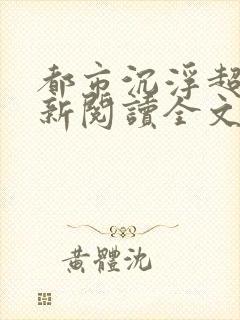 都市沉浮超
新閱讀全文
黃體沈